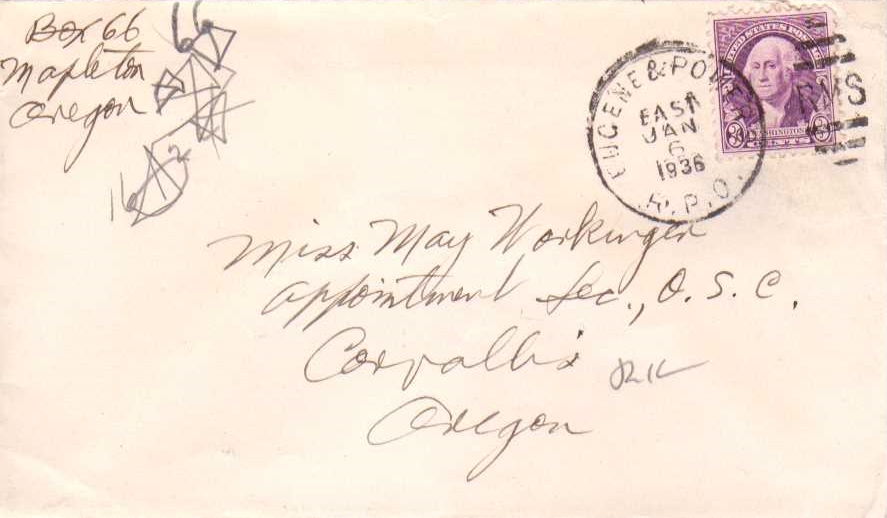 Box 66
Mapleton
Oregon
66
2
16
EUGENE & PO
EAST
JAN
6
1936
R.P.O.
RMS
UNITED STATES POSTAGE
3 WASHINGTON 3
CENTS
Miss May Workinger
Appointment Sec., O.S.C.
Corvallis
Oregon